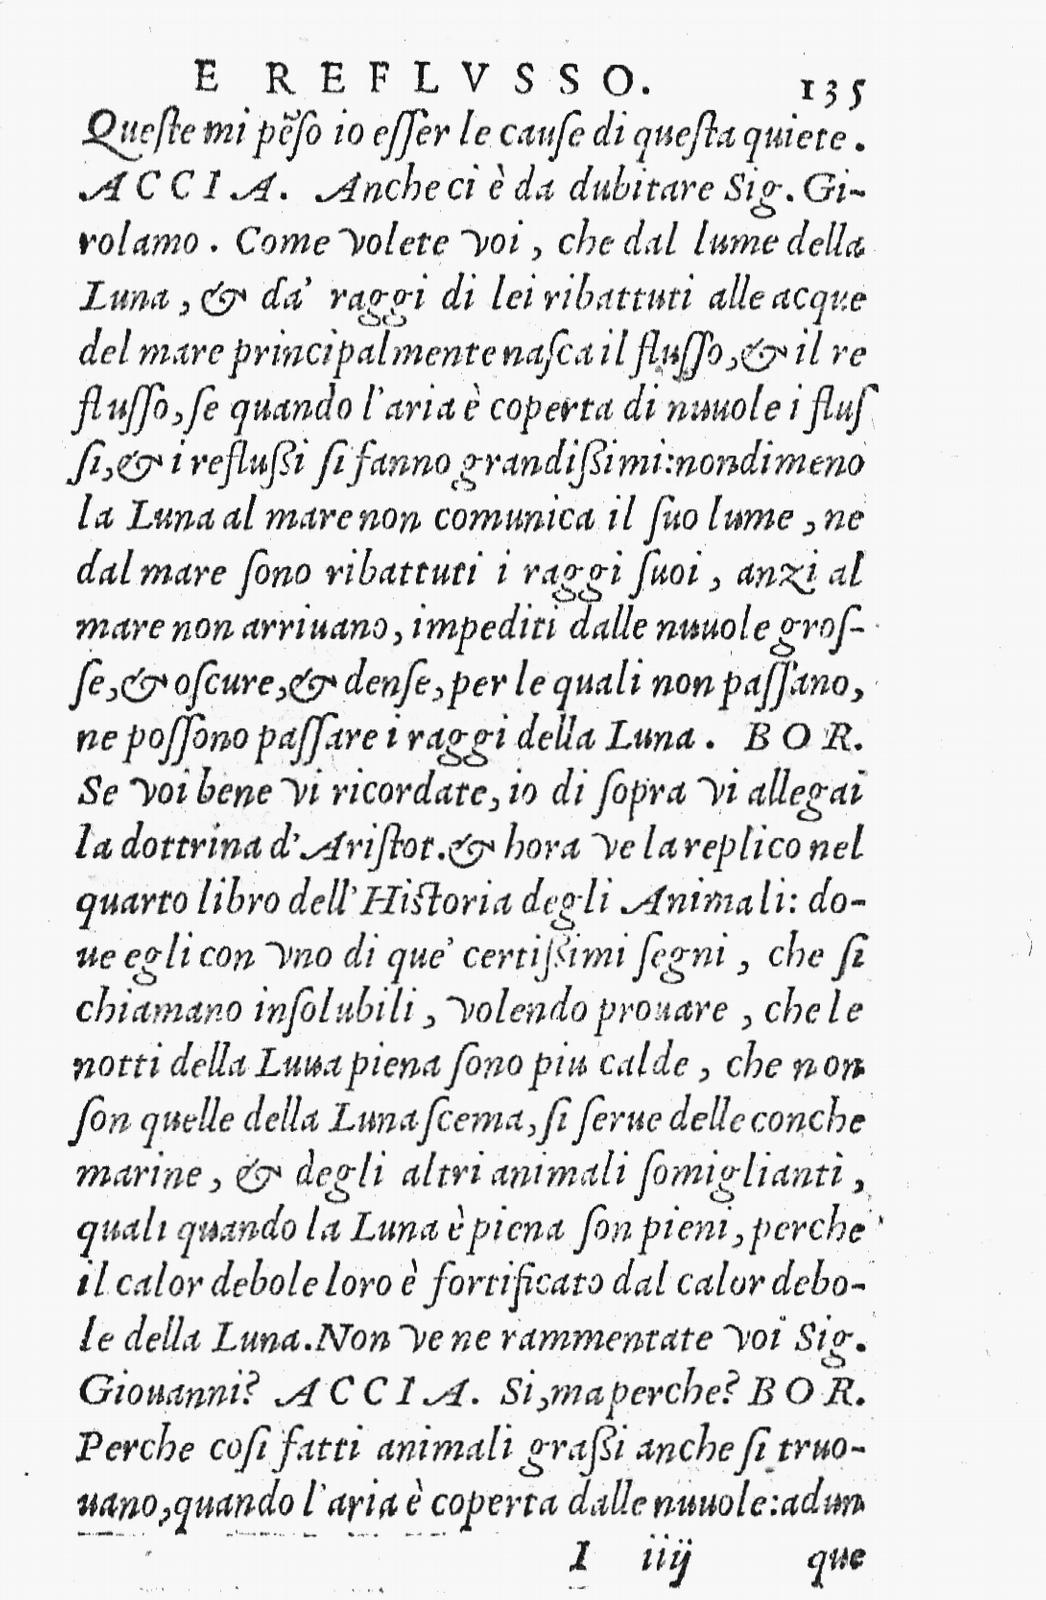 E REFLVSSO. 135
Queſte mi pẽſo io eſſer le cauſe di queſta quiete.
ACCIA. Anche ci è da dubitare Sig. Gi-
rolamo. Come volete voi, che dal lume della
Luna, & da' raggi di lei ribattuti alle acque
del mare principalmente naſca il fluſſo, & il re
fluſſo, ſe quando l'aria è coperta di nuuole i fluſ
ſi, & i reflußi ſi fanno grandißimi: nondimeno
la Luna al mare non comunica il ſuo lume, ne
dal mare ſono ribattuti i raggi ſuoi, anzi al
mare non arriuano, impediti dalle nuuole groſ-
ſe, & oſcure, & denſe, per le quali non paſſano,
ne poſſono paſſare i raggi della Luna. BOR.
Se voi bene vi ricordate, io di ſopra vi allegai
la dottrina d'Ariſtot. & hora ve la replico nel
quarto libro dell'Hiſtoria degli Animali: do-
ue egli con vno di que' certißimi ſegni, che ſi
chiamano inſolubili, volendo prouare, che le
notti della Luua piena ſono piu calde, che non
ſon quelle della Luna ſcema, ſi ſerue delle conche
marine, & degli altri animali ſomiglianti,
quali quando la Luna è piena ſon pieni, perche
il calor debole loro è fortificato dal calor debo-
le della Luna. Non ve ne rammentate voi Sig.
Giouanni? ACCIA. Si, ma perche? BOR.
Perche coſi fatti animali graßi anche ſi truo-
uano, quando l'aria è coperta dalle nuuole: adun
I iiij que